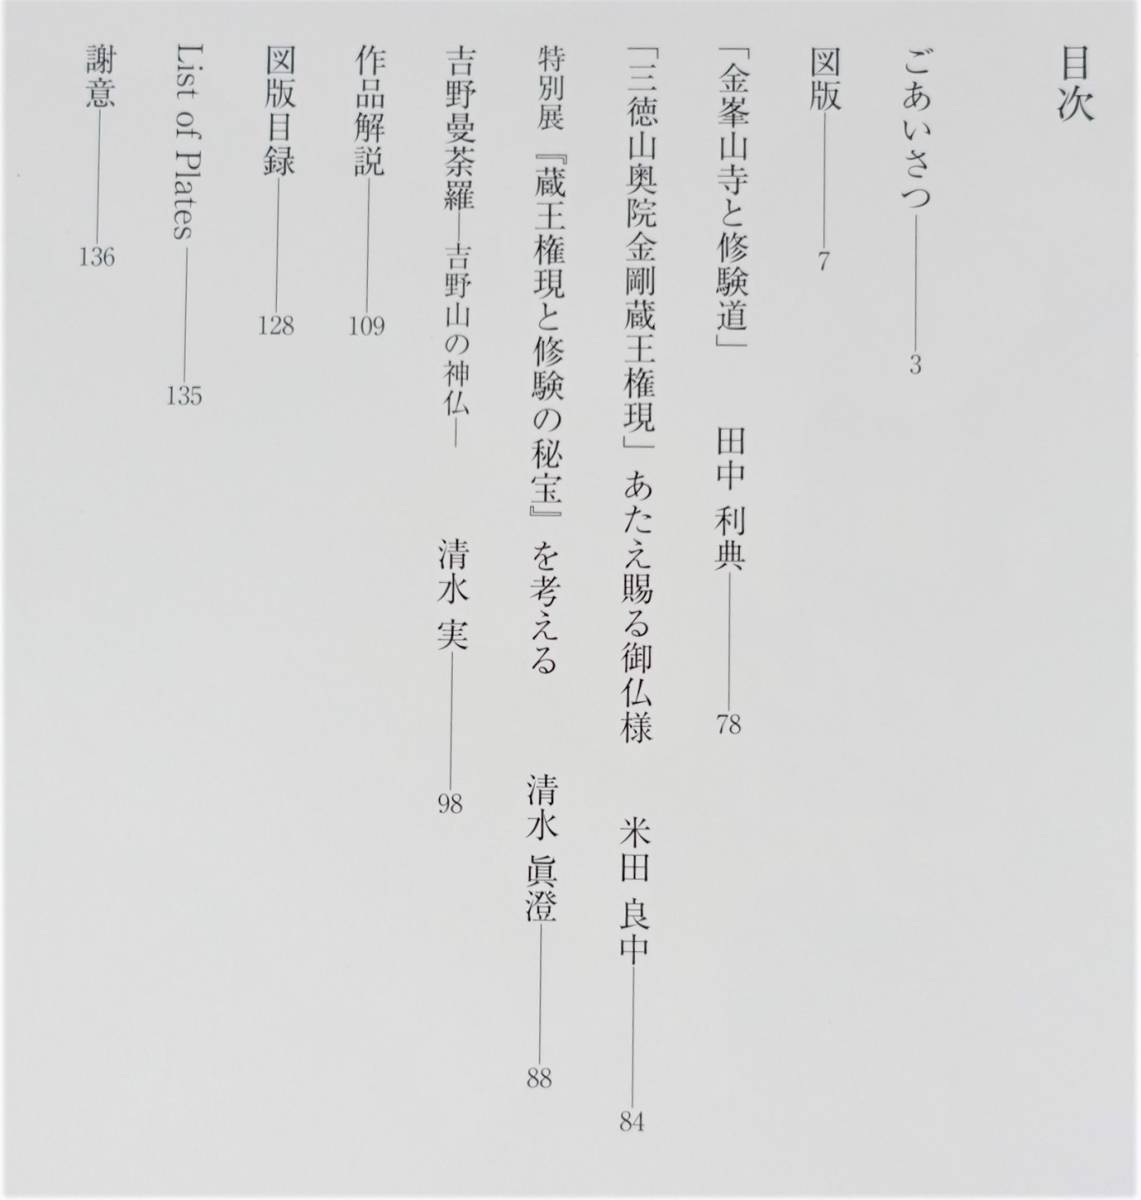 目次
ごあいさつ——3
図版——7
「金峯山寺と修験道」 田中 利典——78
「三徳山奥院金剛蔵王権現」あたえ賜る御仏様 米田 良中——84
特別展『蔵王権現と修験の秘宝』を考える 清水 眞澄——88
吉野曼荼羅—吉野山の神仏— 清水 実——98
作品解説——109
図版目録——128
List of Plates——135
謝意——136